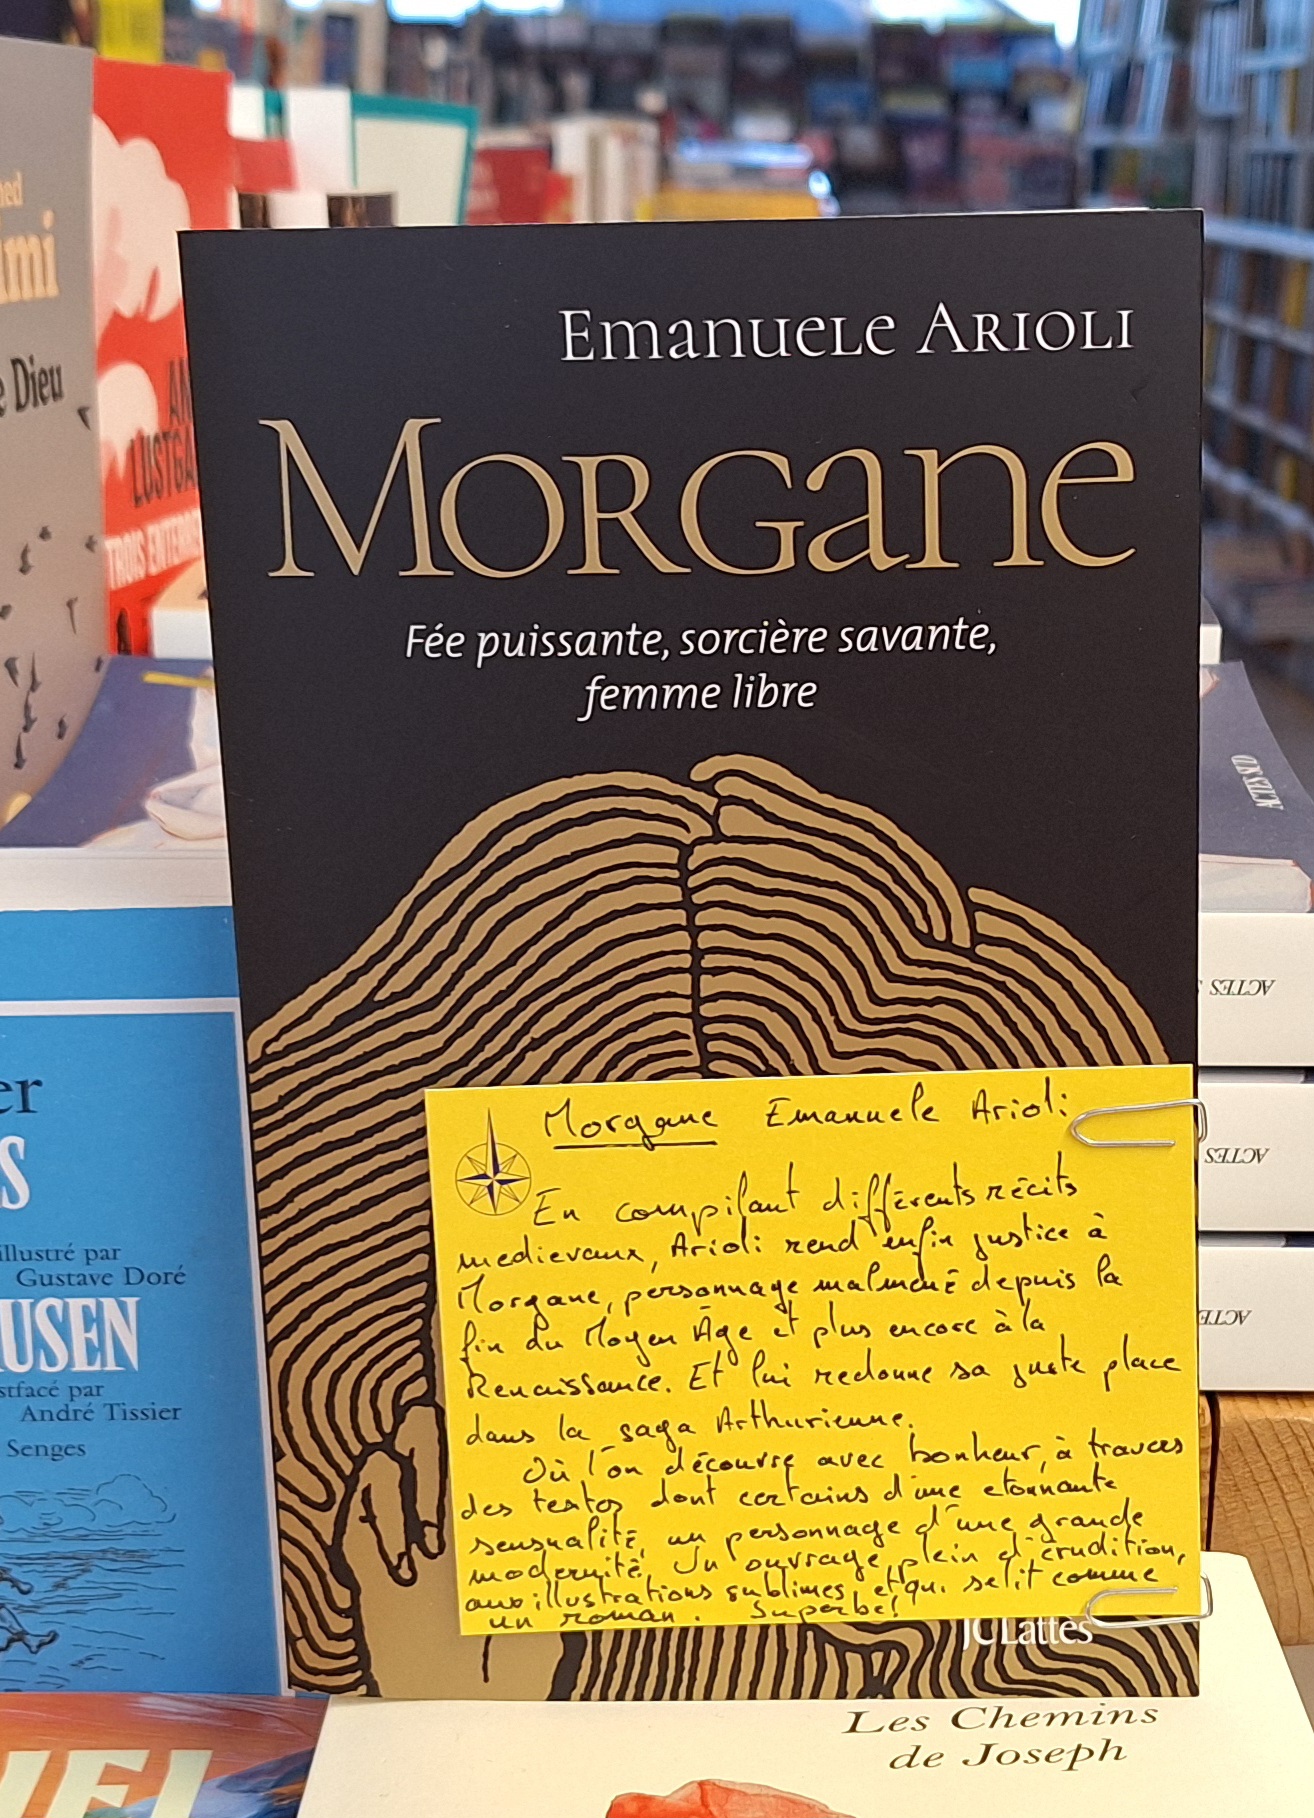 Emanuele Arioli
Morgane
Fée puissante, sorcière savante,
femme libre
Morgane Emanuele Arioli
En compilant différents récits
medievaux, Arioli rend enfin justice à
Morgane, personnage malmené depuis la
fin du Moyen Âge et plus encore à la
Renaissance. Et lui redonne sa juste place
dans la saga Arthurienne.
Où l'on découvre avec bonheur, à travers
des textes dont certains d'une etonnante
sensualité, un personnage d'une grande
modernité. Un ouvrage plein d'érudition,
aux illustrations sublimes, et qui se lit comme
un roman. Superbe!
JC Lattès
Les Chemins
de Joseph
imi
e Dieu
AN
LUSTGA
TROIS ENTERR
er
S
illustré par
Gustave Doré
USEN
stfacé par
André Tissier
Senges
ACTES SUD
ACTES S
ACTES
ACTE